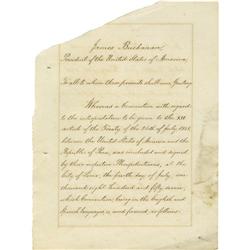 James Buchanan,
President of the United States of America,
To all to whom these presents shall come, Greeting:
Whereas a Convention with regard
to the interpretation to be given to the XII
article of the Treaty of the 26th of July 1851
between the United States of America and the
Republic of Peru, was concluded and signed
by their respective Plenipotentiaries, at the
City of Lima, the fourth day of July, one
thousand eight hundred and fifty seven,
which Convention, being in the English and
Spanish languages, is word for word as follows: